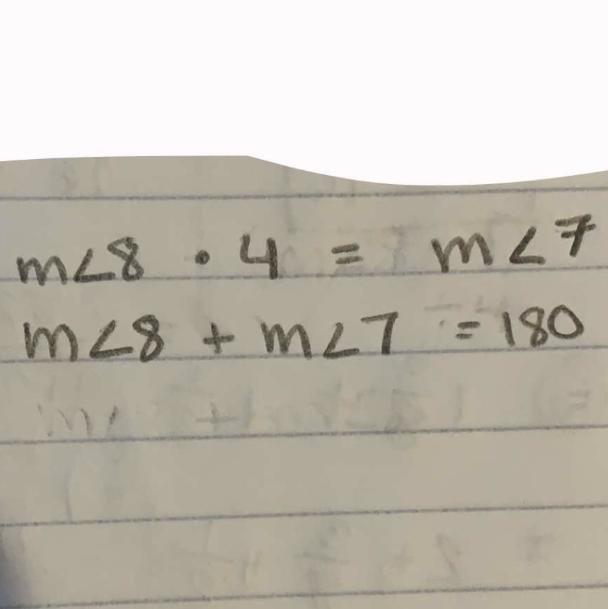 m<8 · 4 = m<7
m<8 + m<7 = 180